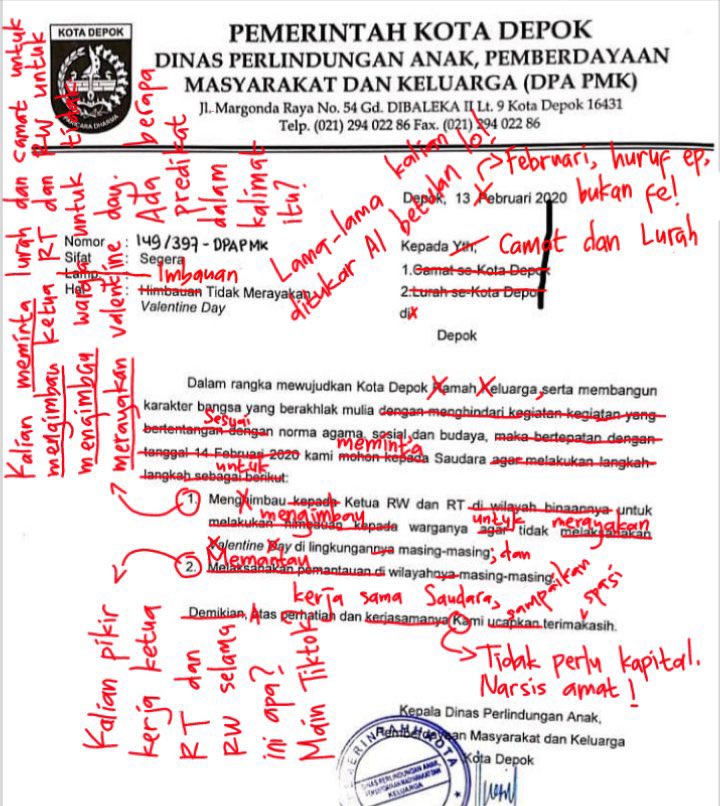 KOTA DEPOK
PARICARA DHARMA
PEMERINTAH KOTA DEPOK
DINAS PERLINDUNGAN ANAK, PEMBERDAYAAN
MASYARAKAT DAN KELUARGA (DPA PMK)
Jl. Margonda Raya No. 54 Gd. DIBALEKA II Lt. 9 Kota Depok 16431
Telp. (021) 294 022 86 Fax. (021) 294 022 86
Kalian meminta lurah dan camat untuk
mengimbau ketua RT dan RW untuk
mengimbau warga untuk tidak
merayakan valentine day. Ada berapa
predikat
dalam
kalimat
itu?
Lama-lama kalian
ditukar AI betulan lo!
Februari, huruf ep,
bukan fe!
Depok, 13 Pebruari 2020
Nomor : 149/397 - DPAPMK
Sifat : Segera
Lamp. :
Imbauan
Hal : Himbauan Tidak Merayakan
Valentine Day
Kepada Yth,
Camat dan Lurah
1.Camat se-Kota Depok
2.Lurah se-Kota Depok
di
Depok
Dalam rangka mewujudkan Kota Depok Ramah Keluarga serta membangun
karakter bangsa yang berakhlak mulia dengan menghindari kegiatan-kegiatan yang
sesuai
bertentangan dengan norma agama, sosial dan budaya, maka bertepatan dengan
meminta
tanggal 14 Februari 2020 kami mohon kepada Saudara agar melakukan langkah-
untuk
langkah sebagai berikut:
1. Menghimbau kepada Ketua RW dan RT di wilayah binaannya untuk
mengimbau untuk merayakan
melakukan himbauan kepada warganya agar tidak melaksanakan
Valentine Day di lingkungannya masing-masing; dan
Memantau
2. Melaksanakan pemantauan di wilayahnya masing-masing.
kerja sama Saudara, sampaikan spasi
Demikian, Atas perhatian dan kerjasamanya Kami ucapkan terimakasih.
Tidak perlu kapital.
Narsis amat!
Kalian pikir
kerja ketua
RT dan
RW selama
ini apa?
Main Tiktok?
Kepala Dinas Perlindungan Anak,
Pemberdayaan Masyarakat dan Keluarga
Kota Depok
PEMERINTAH KOTA
DINAS PERLINDUNGAN ANAK,
PEMBERDAYAAN MASYARAKAT DAN
KELUARGA